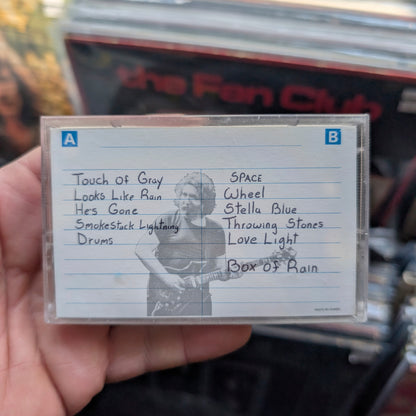 the Fan Club
A
B
Touch of Gray
Looks Like Rain
He's Gone
Smokestack Lightning
Drums
SPACE
Wheel
Stella Blue
Throwing Stones
Love Light
Box of Rain